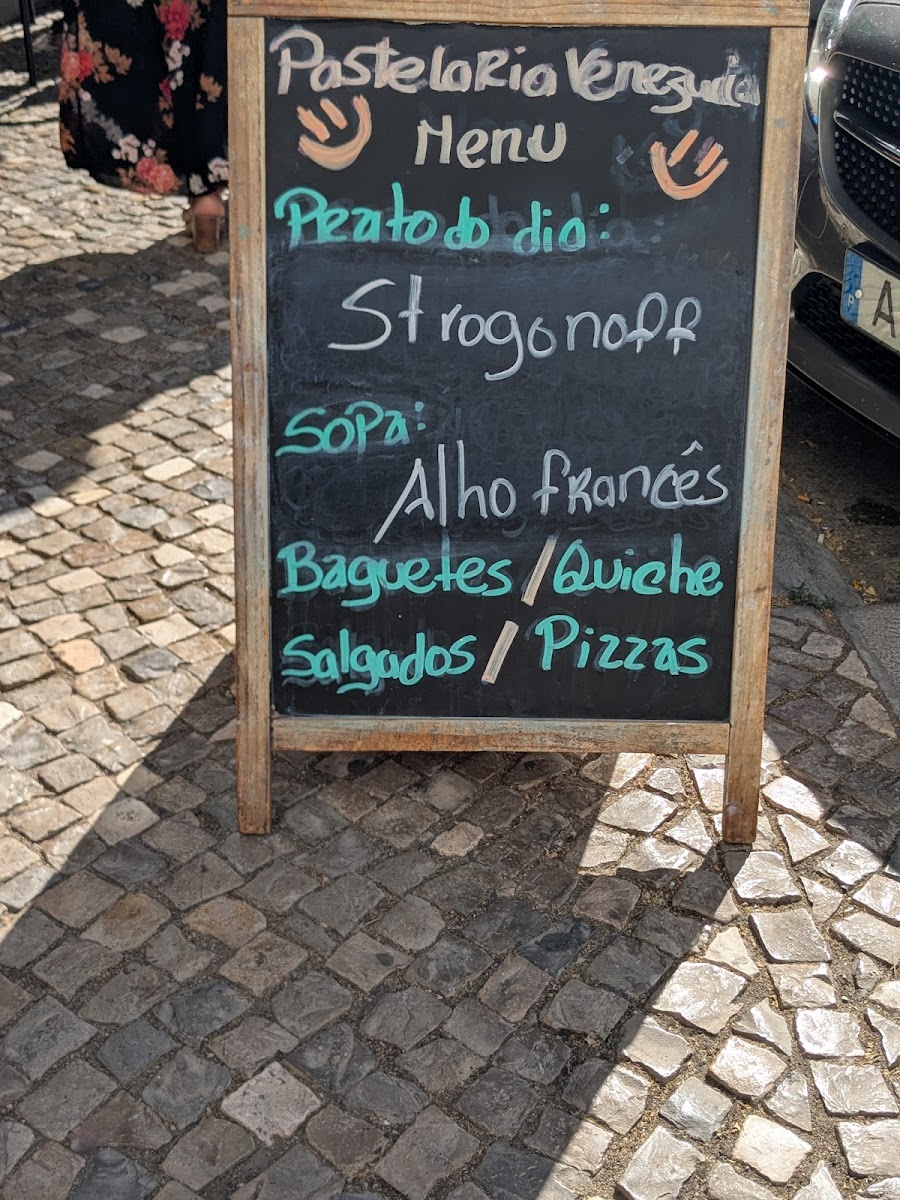 Pastelaria Venezuela
Menu
Prato do dia:
Strogonoff
Sopa:
Alho francês
Baguetes / Quiche
Salgados / Pizzas
P
A